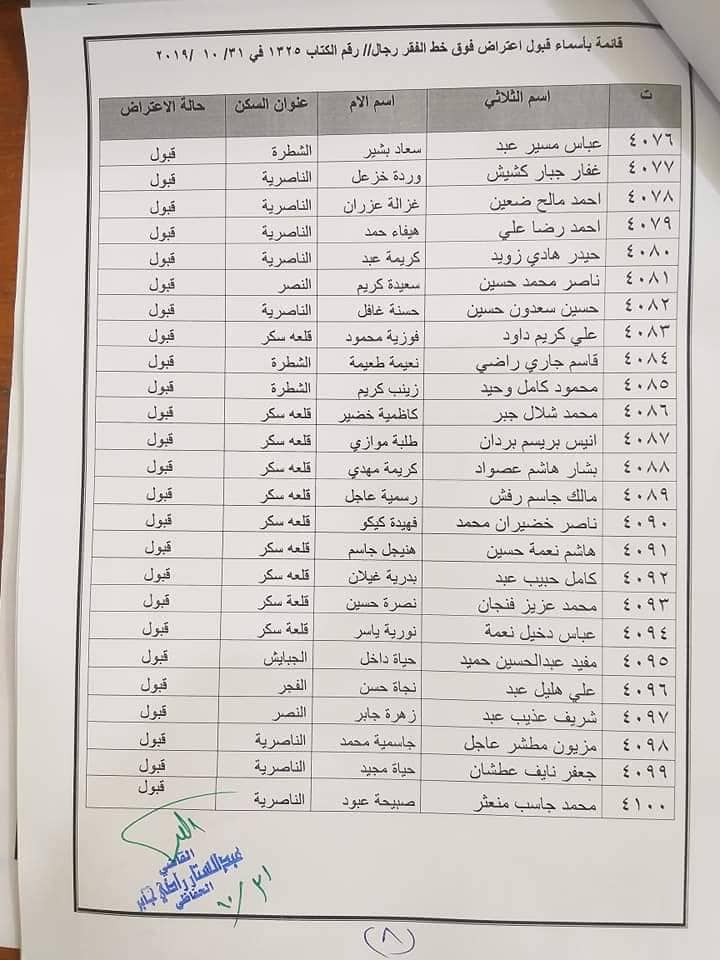 قائمة بأسماء قبول اعتراض فوق خط الفقر رجال// رقم الكتاب ١٣٢٥ في ٣١/ ١٠ /٢٠١٩
ت اسم الثلاثي اسم الام عنوان السكن حالة الاعتراض
٤٠٧٦ عباس مسير عبد سعاد بشير الشطرة قبول
٤٠٧٧ غفار جبار كشيش وردة خزعل الناصرية قبول
٤٠٧٨ احمد مالح ضعين غزالة عزران الناصرية قبول
٤٠٧٩ احمد رضا علي هيفاء حمد الناصرية قبول
٤٠٨٠ حيدر هادي زويد كريمة عبد الناصرية قبول
٤٠٨١ ناصر محمد حسين سعيدة كريم النصر قبول
٤٠٨٢ حسين سعدون حسين حسنة غافل الناصرية قبول
٤٠٨٣ علي كريم داود فوزية محمود قلعه سكر قبول
٤٠٨٤ قاسم جاري راضي نعيمة طعيمة الشطرة قبول
٤٠٨٥ محمود كامل وحيد زينب كريم الشطرة قبول
٤٠٨٦ محمد شلال جبر كاظمية خضير قلعه سكر قبول
٤٠٨٧ انيس بريسم بردان طلبة موازي قلعه سكر قبول
٤٠٨٨ بشار هاشم عصواد كريمة مهدي قلعه سكر قبول
٤٠٨٩ مالك جاسم رفش رسمية عاجل قلعه سكر قبول
٤٠٩٠ ناصر خضيران محمد فهيدة كيكو قلعه سكر قبول
٤٠٩١ هاشم نعمة حسين هنيجل جاسم قلعه سكر قبول
٤٠٩٢ كامل حبيب عبد بدرية غيلان قلعه سكر قبول
٤٠٩٣ محمد عزيز فنجان نصرة حسين قلعة سكر قبول
٤٠٩٤ عباس دخيل نعمة نورية ياسر قلعة سكر قبول
٤٠٩٥ مفيد عبدالحسين حميد حياة داخل الجبايش قبول
٤٠٩٦ علي هليل عبد نجاة حسن الفجر قبول
٤٠٩٧ شريف عذيب عبد زهرة جابر النصر قبول
٤٠٩٨ مزيون مطشر عاجل جاسمية محمد الناصرية قبول
٤٠٩٩ جعفر نايف عطشان حياة مجيد الناصرية قبول
٤١٠٠ محمد جاسب منعثر صبيحة عبود الناصرية قبول
القاضي
عبدالستار راضي جابر
الخفاجي
٣١/١٠
(٨)